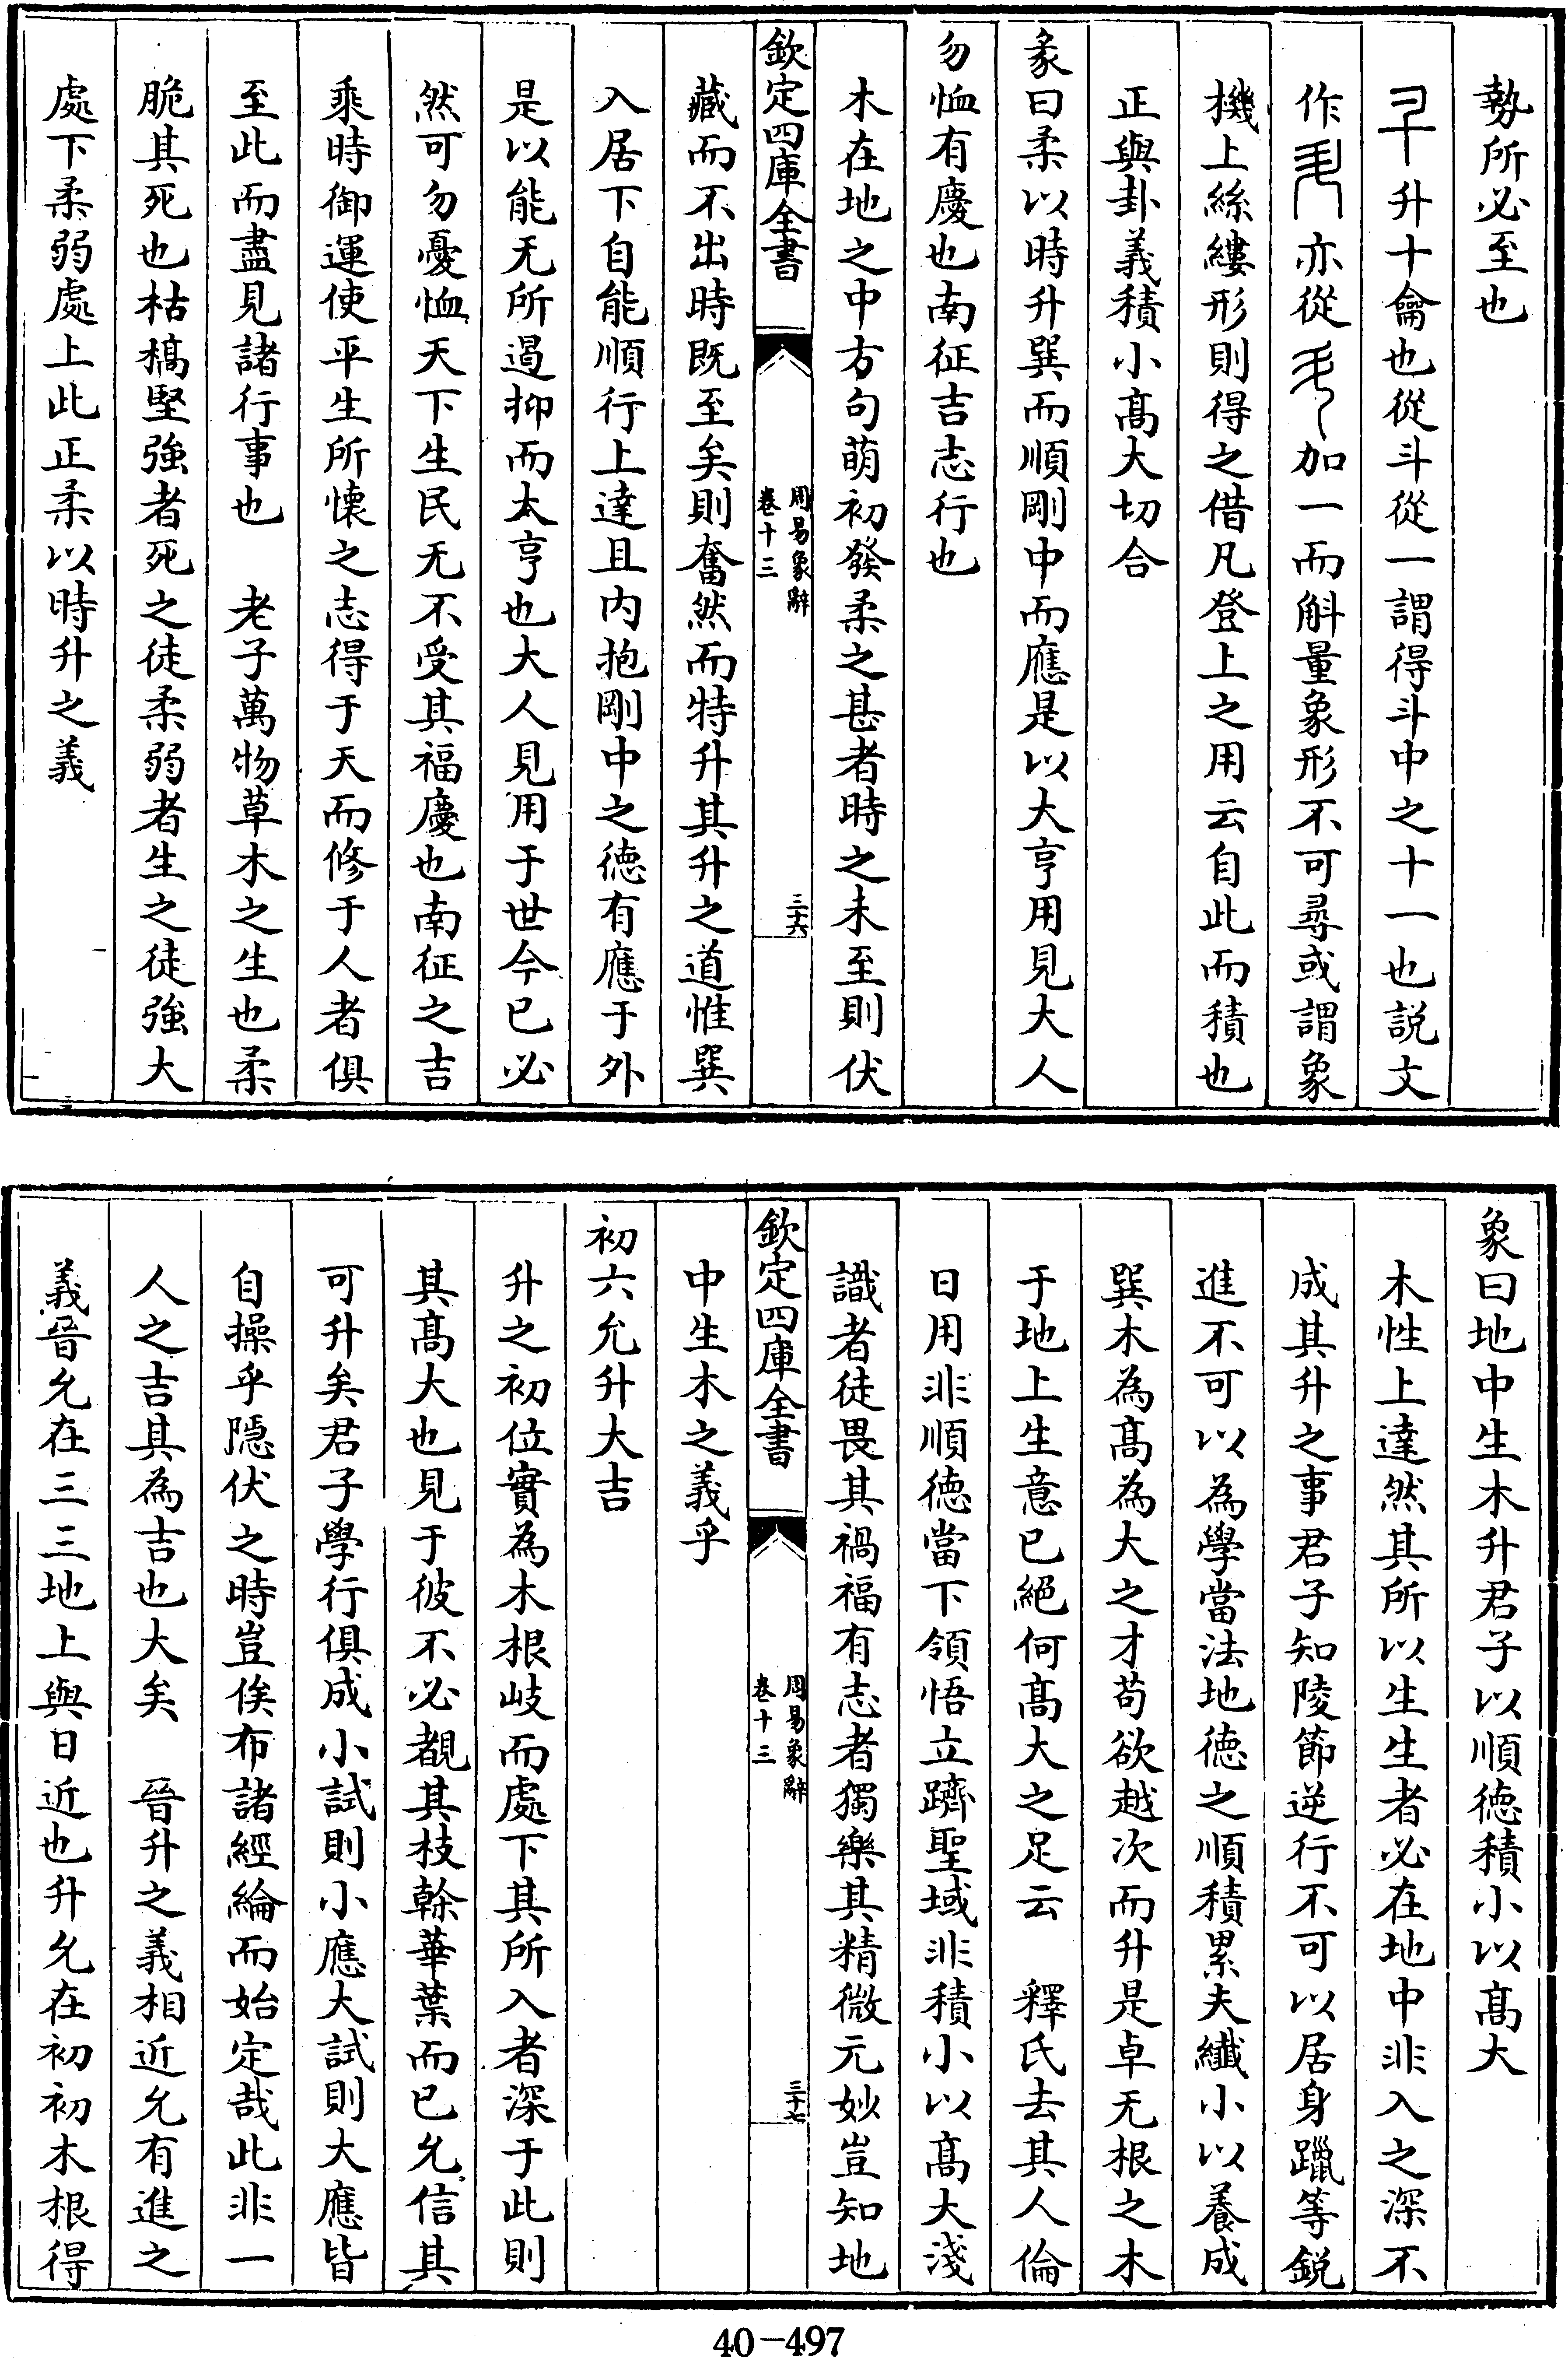 勢所必至也
升十龠也從斗從一謂得斗中之十一也説文
作亦從加一而斛量象形不可尋或謂象
機上絲縷形則得之借凡登上之用云自此而積也
正與卦義積小髙大切合
彖曰柔以時升巽而順剛中而應是以大亨用見大人
勿恤有慶也南征吉志行也
木在地之中方句萌初發柔之甚者時之未至則伏
欽定四庫全書
周易象辭
卷十三
三十六
藏而不出時既至矣則奮然而特升其升之道惟巽
入居下自能順行上達且内抱剛中之徳有應于外
是以能无所遏抑而太亨也大人見用于世今已必
然可勿憂恤天下生民无不受其福慶也南征之吉
乘時御運使平生所懐之志得于天而修于人者俱
至此而盡見諸行事也　老子萬物草木之生也柔
脆其死也枯槁堅強者死之徒柔弱者生之徒強大
處下柔弱處上此正柔以時升之義
象曰地中生木升君子以順徳積小以髙大
木性上達然其所以生生者必在地中非入之深不
成其升之事君子知陵節逆行不可以居身躐等鋭
進不可以為學當法地徳之順積累夫纎小以養成
巽木為髙為大之才苟欲越次而升是卓无根之木
于地上生意已絕何髙大之足云　釋氏去其人倫
日用非順徳當下領悟立躋聖域非積小以髙大淺
識者徒畏其禍福有志者獨樂其精微元妙豈知地
欽定四庫全書
周易象辭
卷十三
三十七
中生木之義乎
初六允升大吉
升之初位實為木根岐而處下其所入者深于此則
其髙大也見于彼不必覩其枝榦華葉而已允信其
可升矣君子學行俱成小試則小應大試則大應皆
自操乎隠伏之時豈俟布諸經綸而始定哉此非一
人之吉其為吉也大矣　晉升之義相近允有進之
義晉允在三三地上與日近也升允在初初木根得
40-497